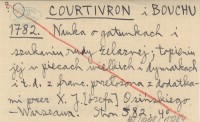 COURTIVRON i BOUCHU
1782. Nauka o gatunkach i
szukaniu rudy żelaznej, topieniu
jej w piecach wielkich i dymarkach
i t. d. z franc. przełożona z dodatka-
mi przez X. J. [Józefa] Osińskiego
—Warszawa.